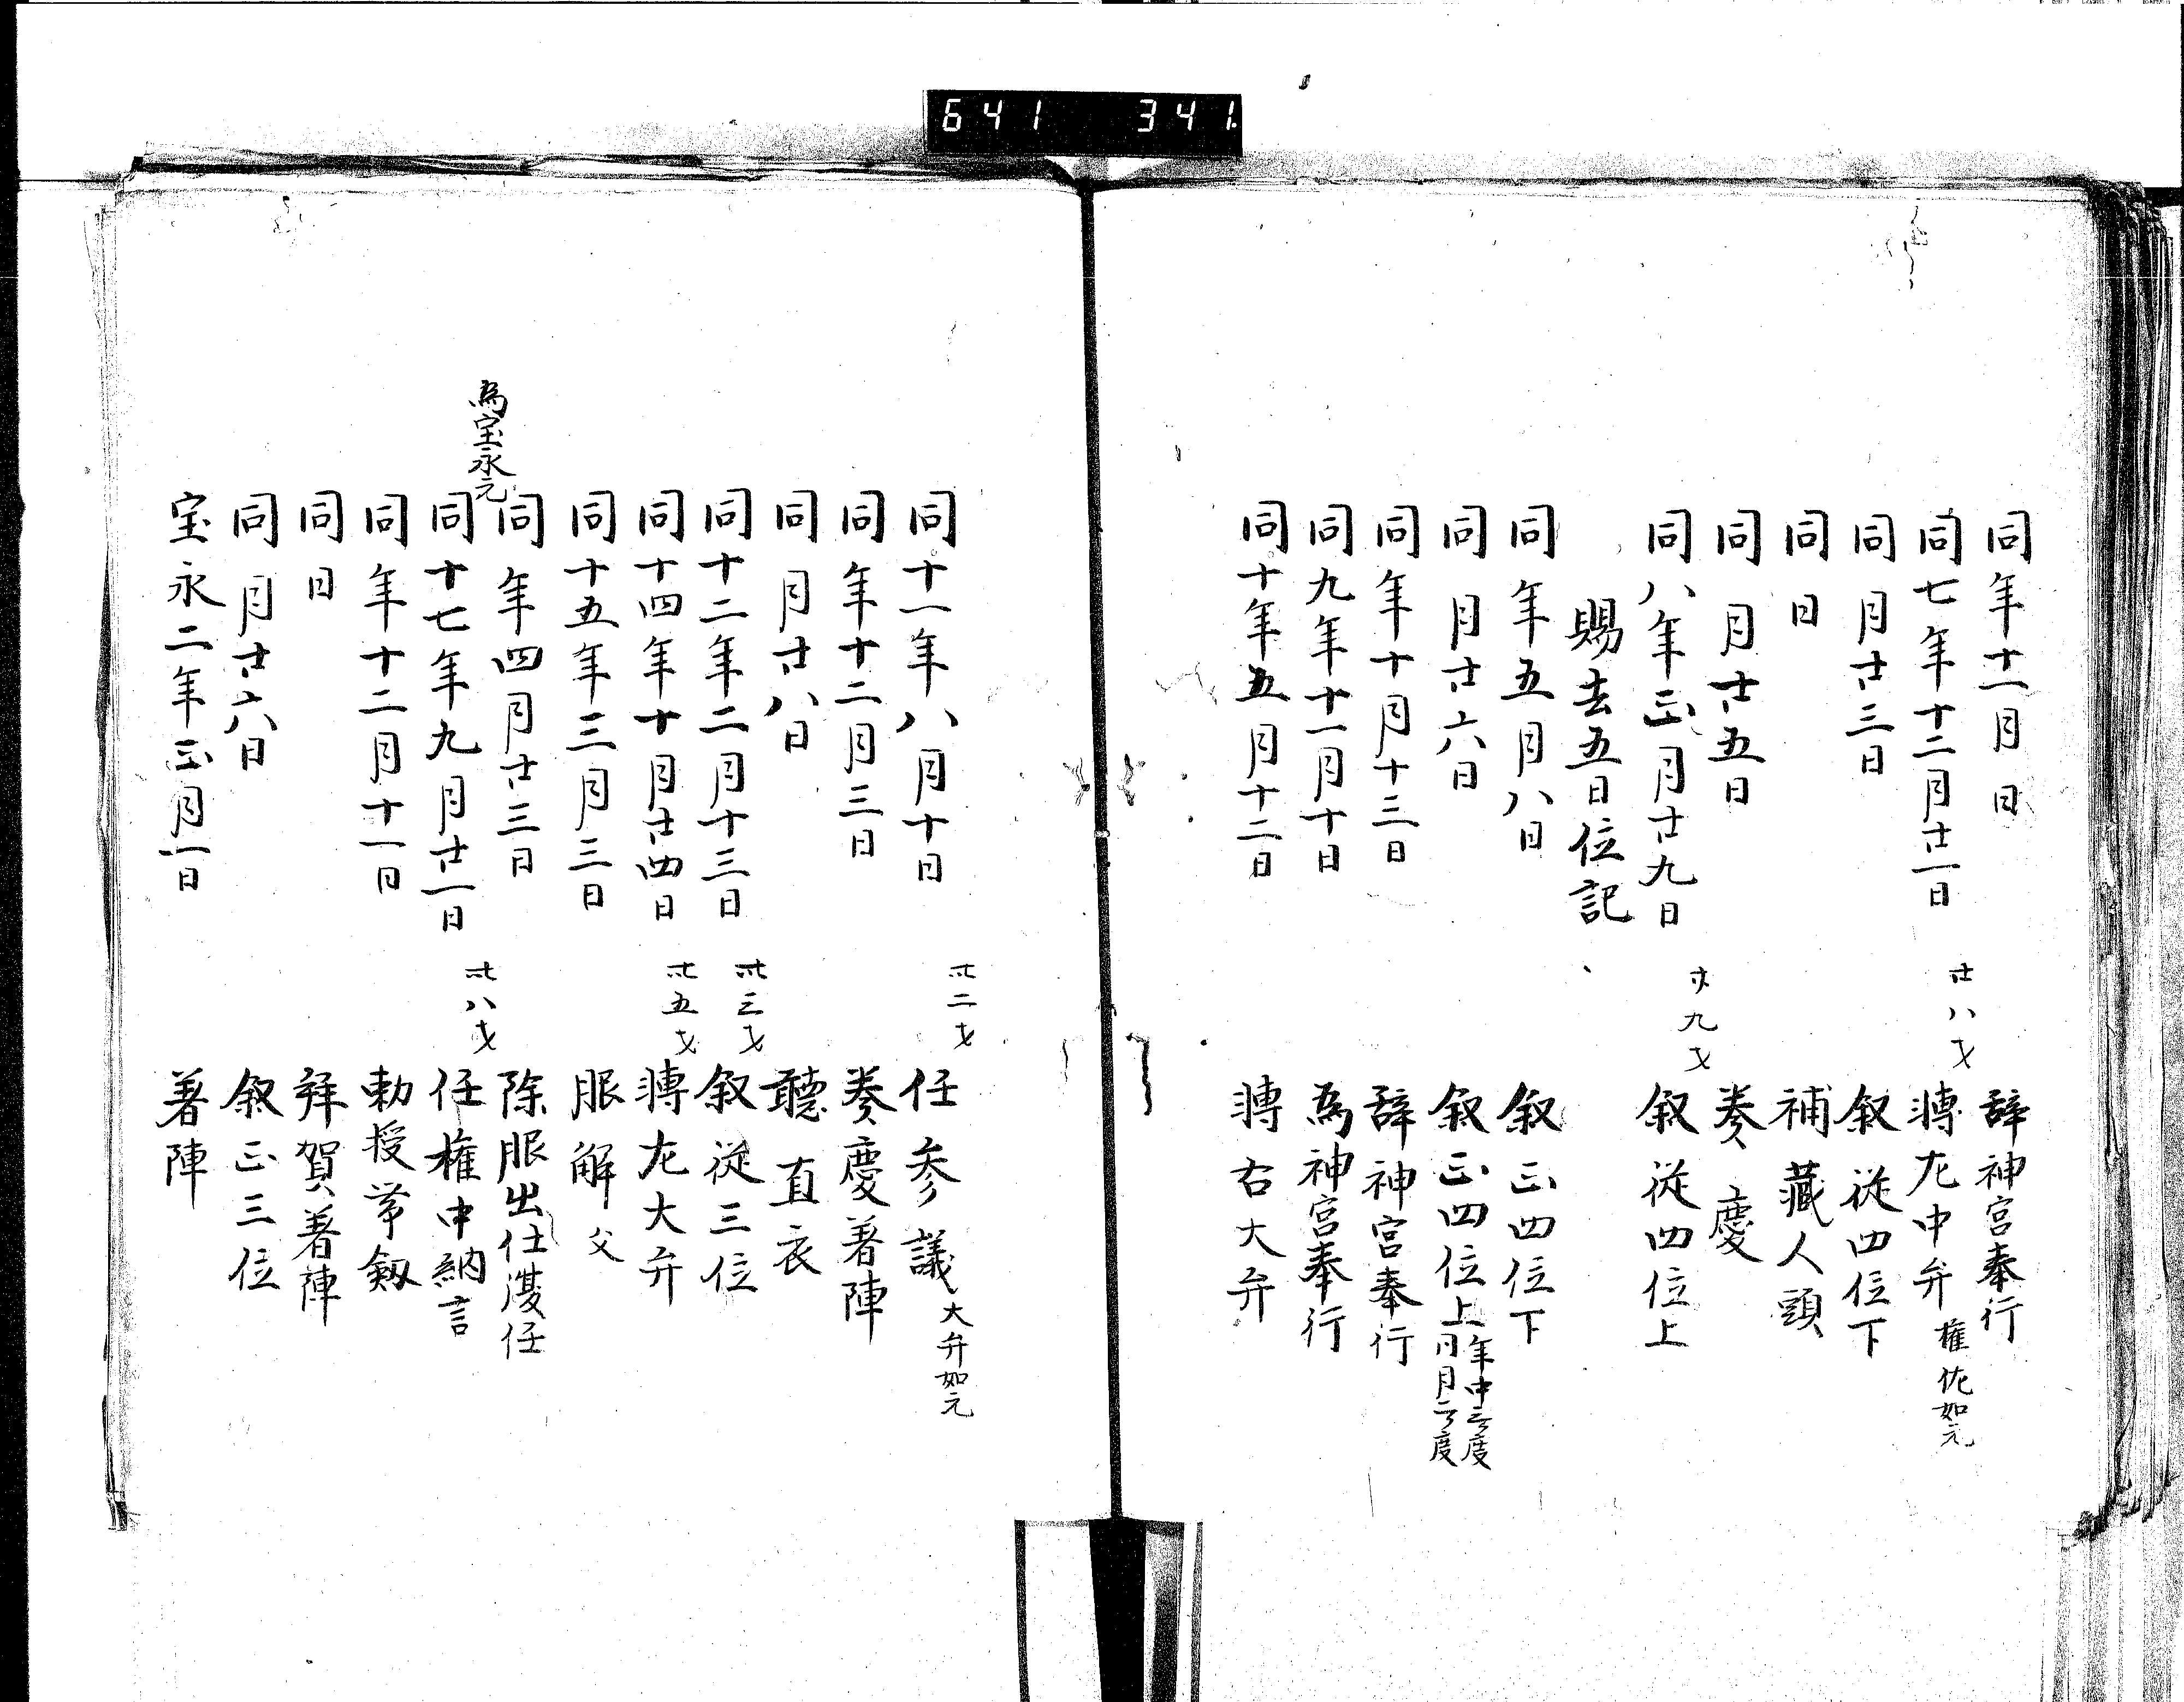 641 341
同年十一月日 辞神宮奉行
同七年十二月廿一日 廿八才 転左中弁 権佐如元
同月廿三日 叙従四位下
同日 補蔵人頭
同月廿五日 奏慶
同八年正月廿九日 廿九才 叙従四位上
賜去五日位記
同年五月八日 叙正四位下
同月廿六日 叙正四位上 年中三ケ度 同月二ケ度
同年十月十三日 辞神宮奉行
同九年十一月十日 為神宮奉行
同十年五月十二日 転右大弁
同十一年八月十日 卅二才 任参議 大弁如元
同年十二月三日 奏慶著陣
同月廿八日 聴直衣
同十二年二月十三日 卅三才 叙従三位
同十四年十月廿四日 卅五才 転左大弁
同十五年三月三日 服解 父
同年四月廿三日 除服出仕復任
為宝永元
同十七年九月廿一日 卅八才 任権中納言
同年十二月十一日 勅授帯剱
同日 拝賀著陣
同月廿六日 叙正三位
宝永二年正月一日 著陣